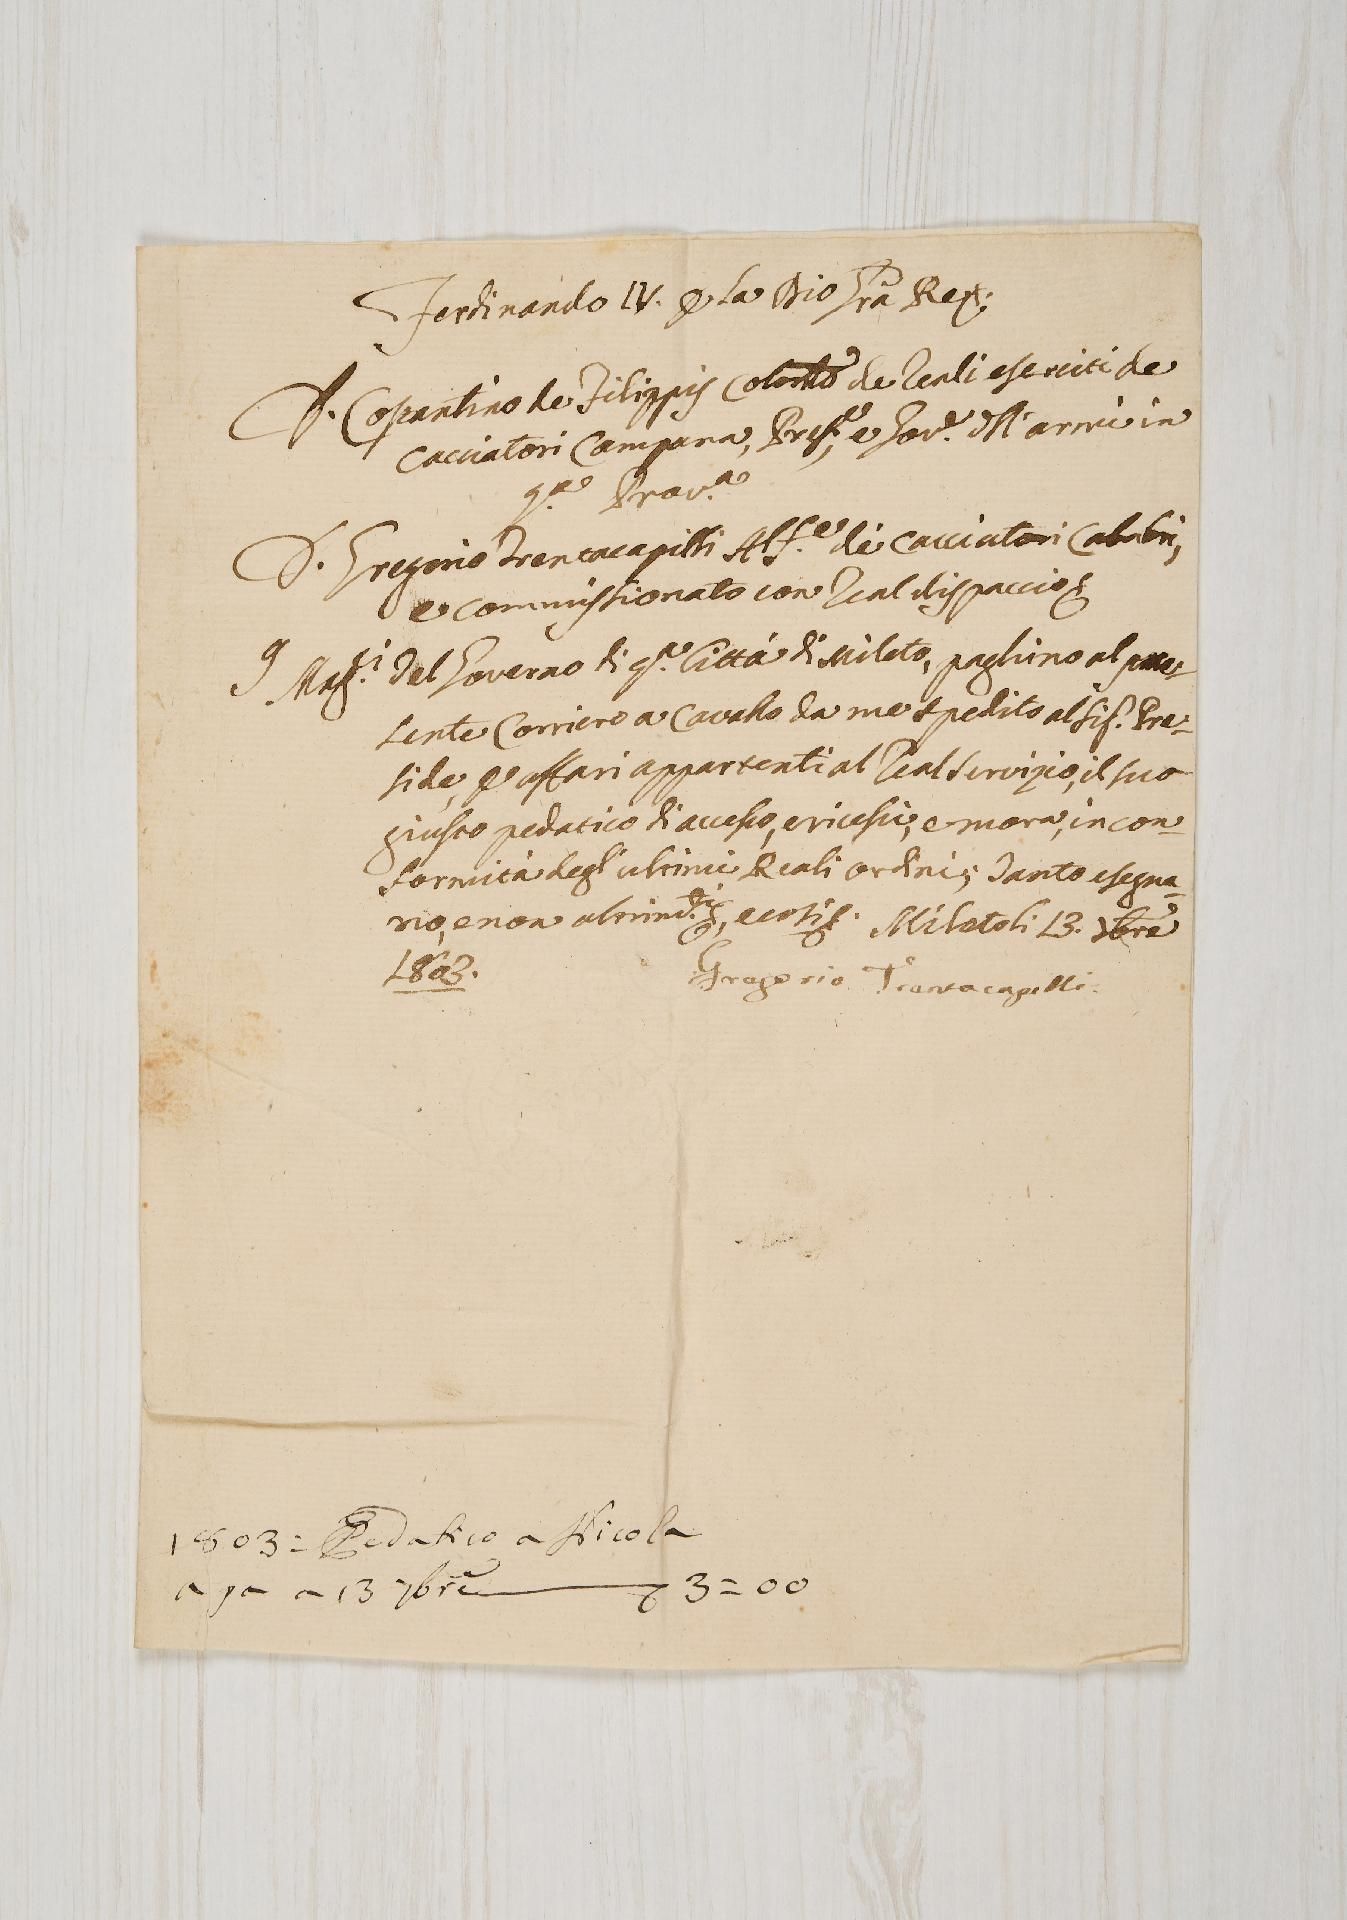 Ferdinando IV. P la Dio Gra Rex:
D. Costantino de Filippis Colonllo de Reali eserciti de
Cacciatori Campana, Presde, e Govre. dll'armi in
qsta Prova
D. Gregorio Trentacapilli Alfre de Cacciatori Calabri,
e commissionato con Real dispaccio
I Magci del Governo di qsta Città di Mileto, paghino al pre=
sente Corriero a Cavallo da me spedito al Sigr. Pre=
side, P affari appartenti al Real Servizio, il suo
giusto pedatico di accesso, e ricessu, e mora, in con=
formità degl'ultimi Reali ordini; Tanto esegua=
no, e non altrimti, e così. Mileto li 13. 7bre
1803.
Gregorio Trentacapilli.
1803= Pedatico a Nicola
a 13 7bre 3=00